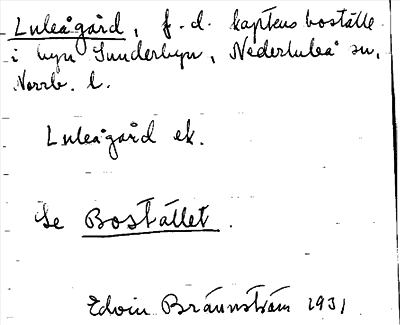 Luleågård, f.d. kaptens boställe
i byn Sunderbyn, Nederluleå sn,
Norrb. l.
Luleågård ek.
Se Bostället.
Edvin Brännström 1931